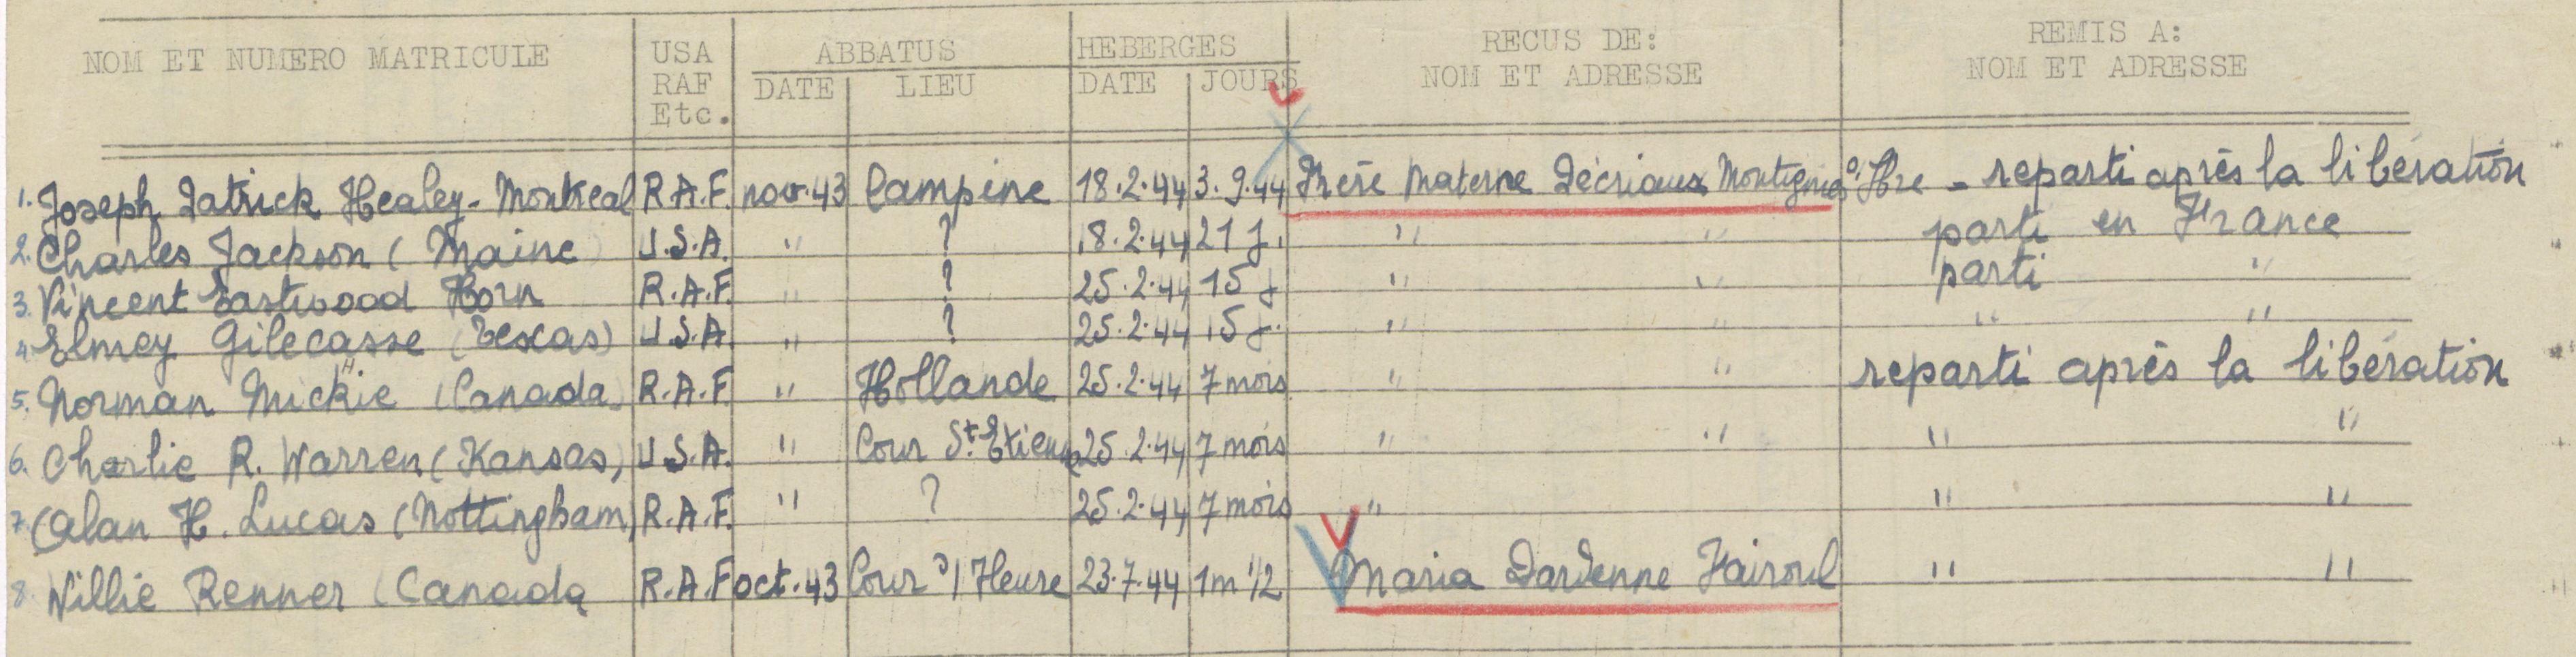 NOM ET NUMERO MATRICULE USA ABBATUS HEBERGES RECUS DE: REMIS A:
RAF DATE LIEU DATE JOURS NOM ET ADRESSE NOM ET ADRESSE
Etc.
1. Joseph Patrick Healey - Montreal R.A.F. nov. 43 Campine 18.2.44 3.9.44 Frère Materne Décriaux Montignies s/Sre - reparti après la libération
2. Charles Jackson ( Maine U.S.A. " ? 18.2.44 21 j. " " parti en France
3. Vincent Eastwood Horn R.A.F. " ? 25.2.44 15 j " " parti "
4. Elmey Gilecasse (Texas) U.S.A. " ? 25.2.44 15 j. " " " "
5. Norman Mickie (Canada) R.A.F. " Hollande 25.2.44 7 mois " " reparti après la libération
6. Charlie R. Warren (Kansas) U.S.A. " Cour St. Etienne 25.2.44 7 mois " " " "
7. Alan H. Lucas (Nottingham) R.A.F. " ? 25.2.44 7 mois " " "
8. Willie Renner (Canada R.A.F. oct. 43 Cour s/ Heure 23.7.44 1m 1/2 Maria Dardenne Fairoul " "